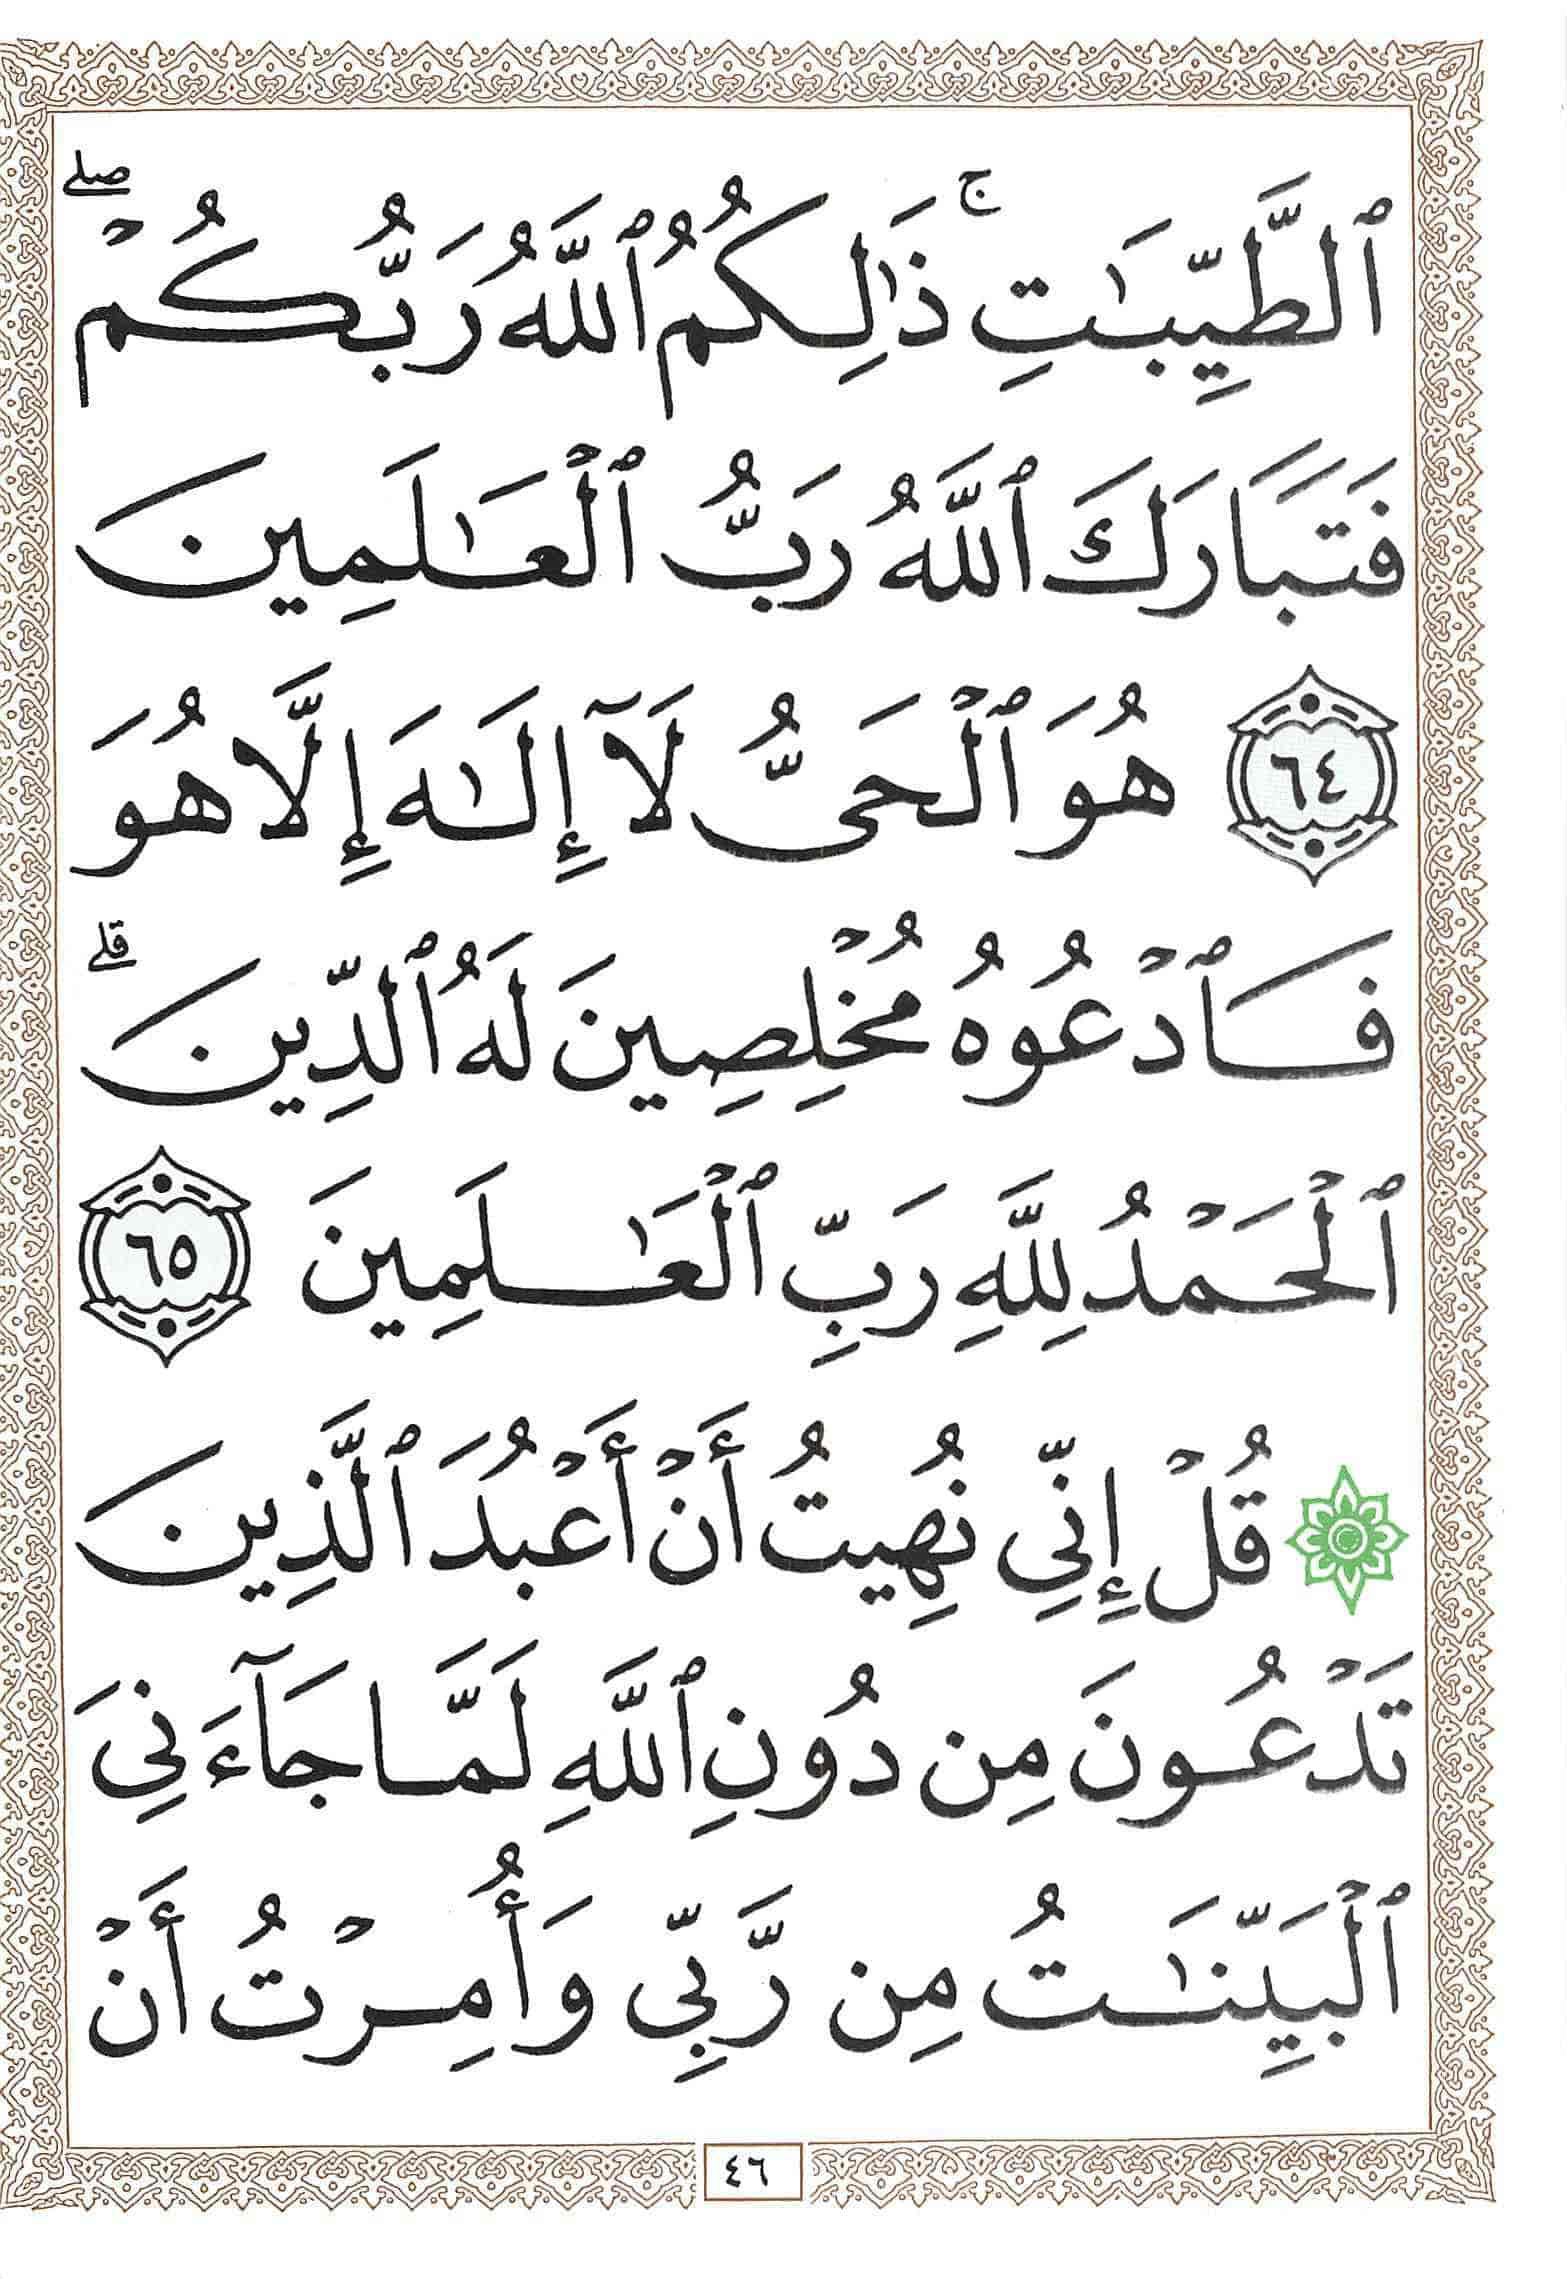 ٱلطَّيِّبَٰتِ ۚ ذَٰلِكُمُ ٱللَّهُ رَبُّكُمْ ۖ
فَتَبَارَكَ ٱللَّهُ رَبُّ ٱلْعَٰلَمِينَ
٦٤ هُوَ ٱلْحَىُّ لَآ إِلَٰهَ إِلَّا هُوَ
فَٱدْعُوهُ مُخْلِصِينَ لَهُ ٱلدِّينَ ۗ
ٱلْحَمْدُ لِلَّهِ رَبِّ ٱلْعَٰلَمِينَ ٦٥
۞ قُلْ إِنِّى نُهِيتُ أَنْ أَعْبُدَ ٱلَّذِينَ
تَدْعُونَ مِن دُونِ ٱللَّهِ لَمَّا جَآءَنِىَ
ٱلْبَيِّنَٰتُ مِن رَّبِّى وَأُمِرْتُ أَنْ
٤٦